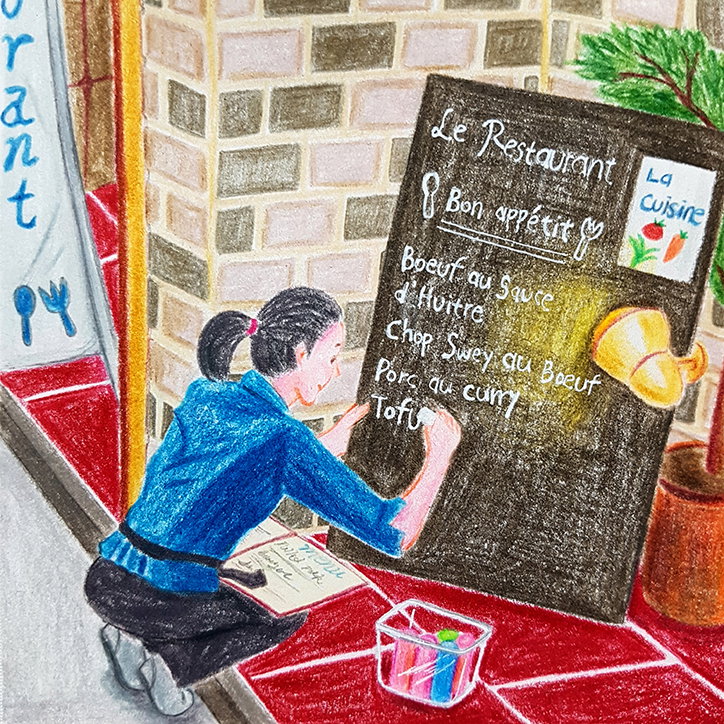 orant
Le Restaurant
Bon appétit
La
Cuisine
Boeuf au Sauce
d'Huitre
Chop Swey au Boeuf
Porc au curry
Tofu
menu